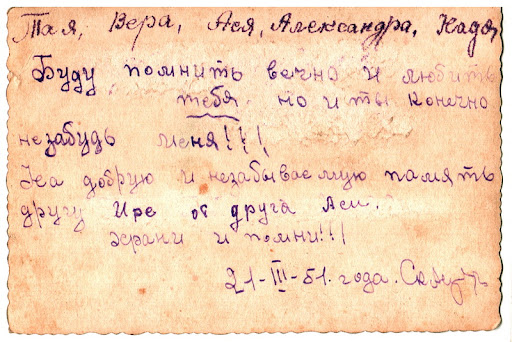 Тая, Вера, Ася, Александра, Надя
Буду помнить вечно и любить
тебя, но и ты конечно
незабудь меня!!!!
На добрую и незабываемую память
другу Ире от друга Аси.
храни и помни!!!
21-III-51. года.